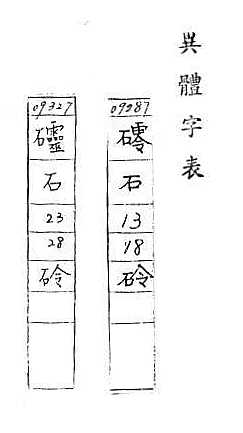 異體字表
09287
石
13
18
砱
09327
石
23
28
砱